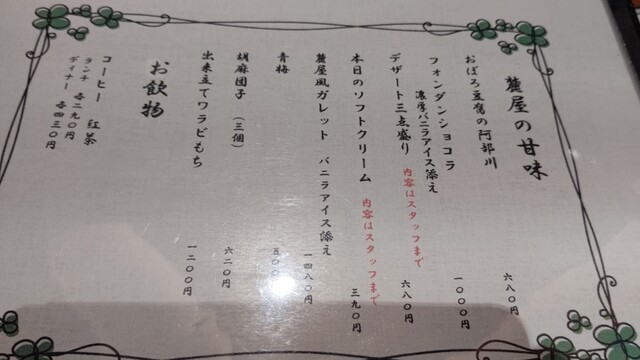 麓屋の甘味
おぼろ豆腐の阿部川 六八〇円
フォンダンショコラ 一〇〇〇円
濃厚バニラアイス添え
デザート三点盛り 内容はスタッフまで 六八〇円
本日のソフトクリーム 内容はスタッフまで 三九〇円
麓屋風ガレット バニラアイス添え 一四八〇円
青梅
胡麻団子 (三個) 六二〇円
出来立てワラビもち 一二〇〇円
お飲物
コーヒー 紅茶
ランチ 各二九〇円
ディナー 各四三〇円